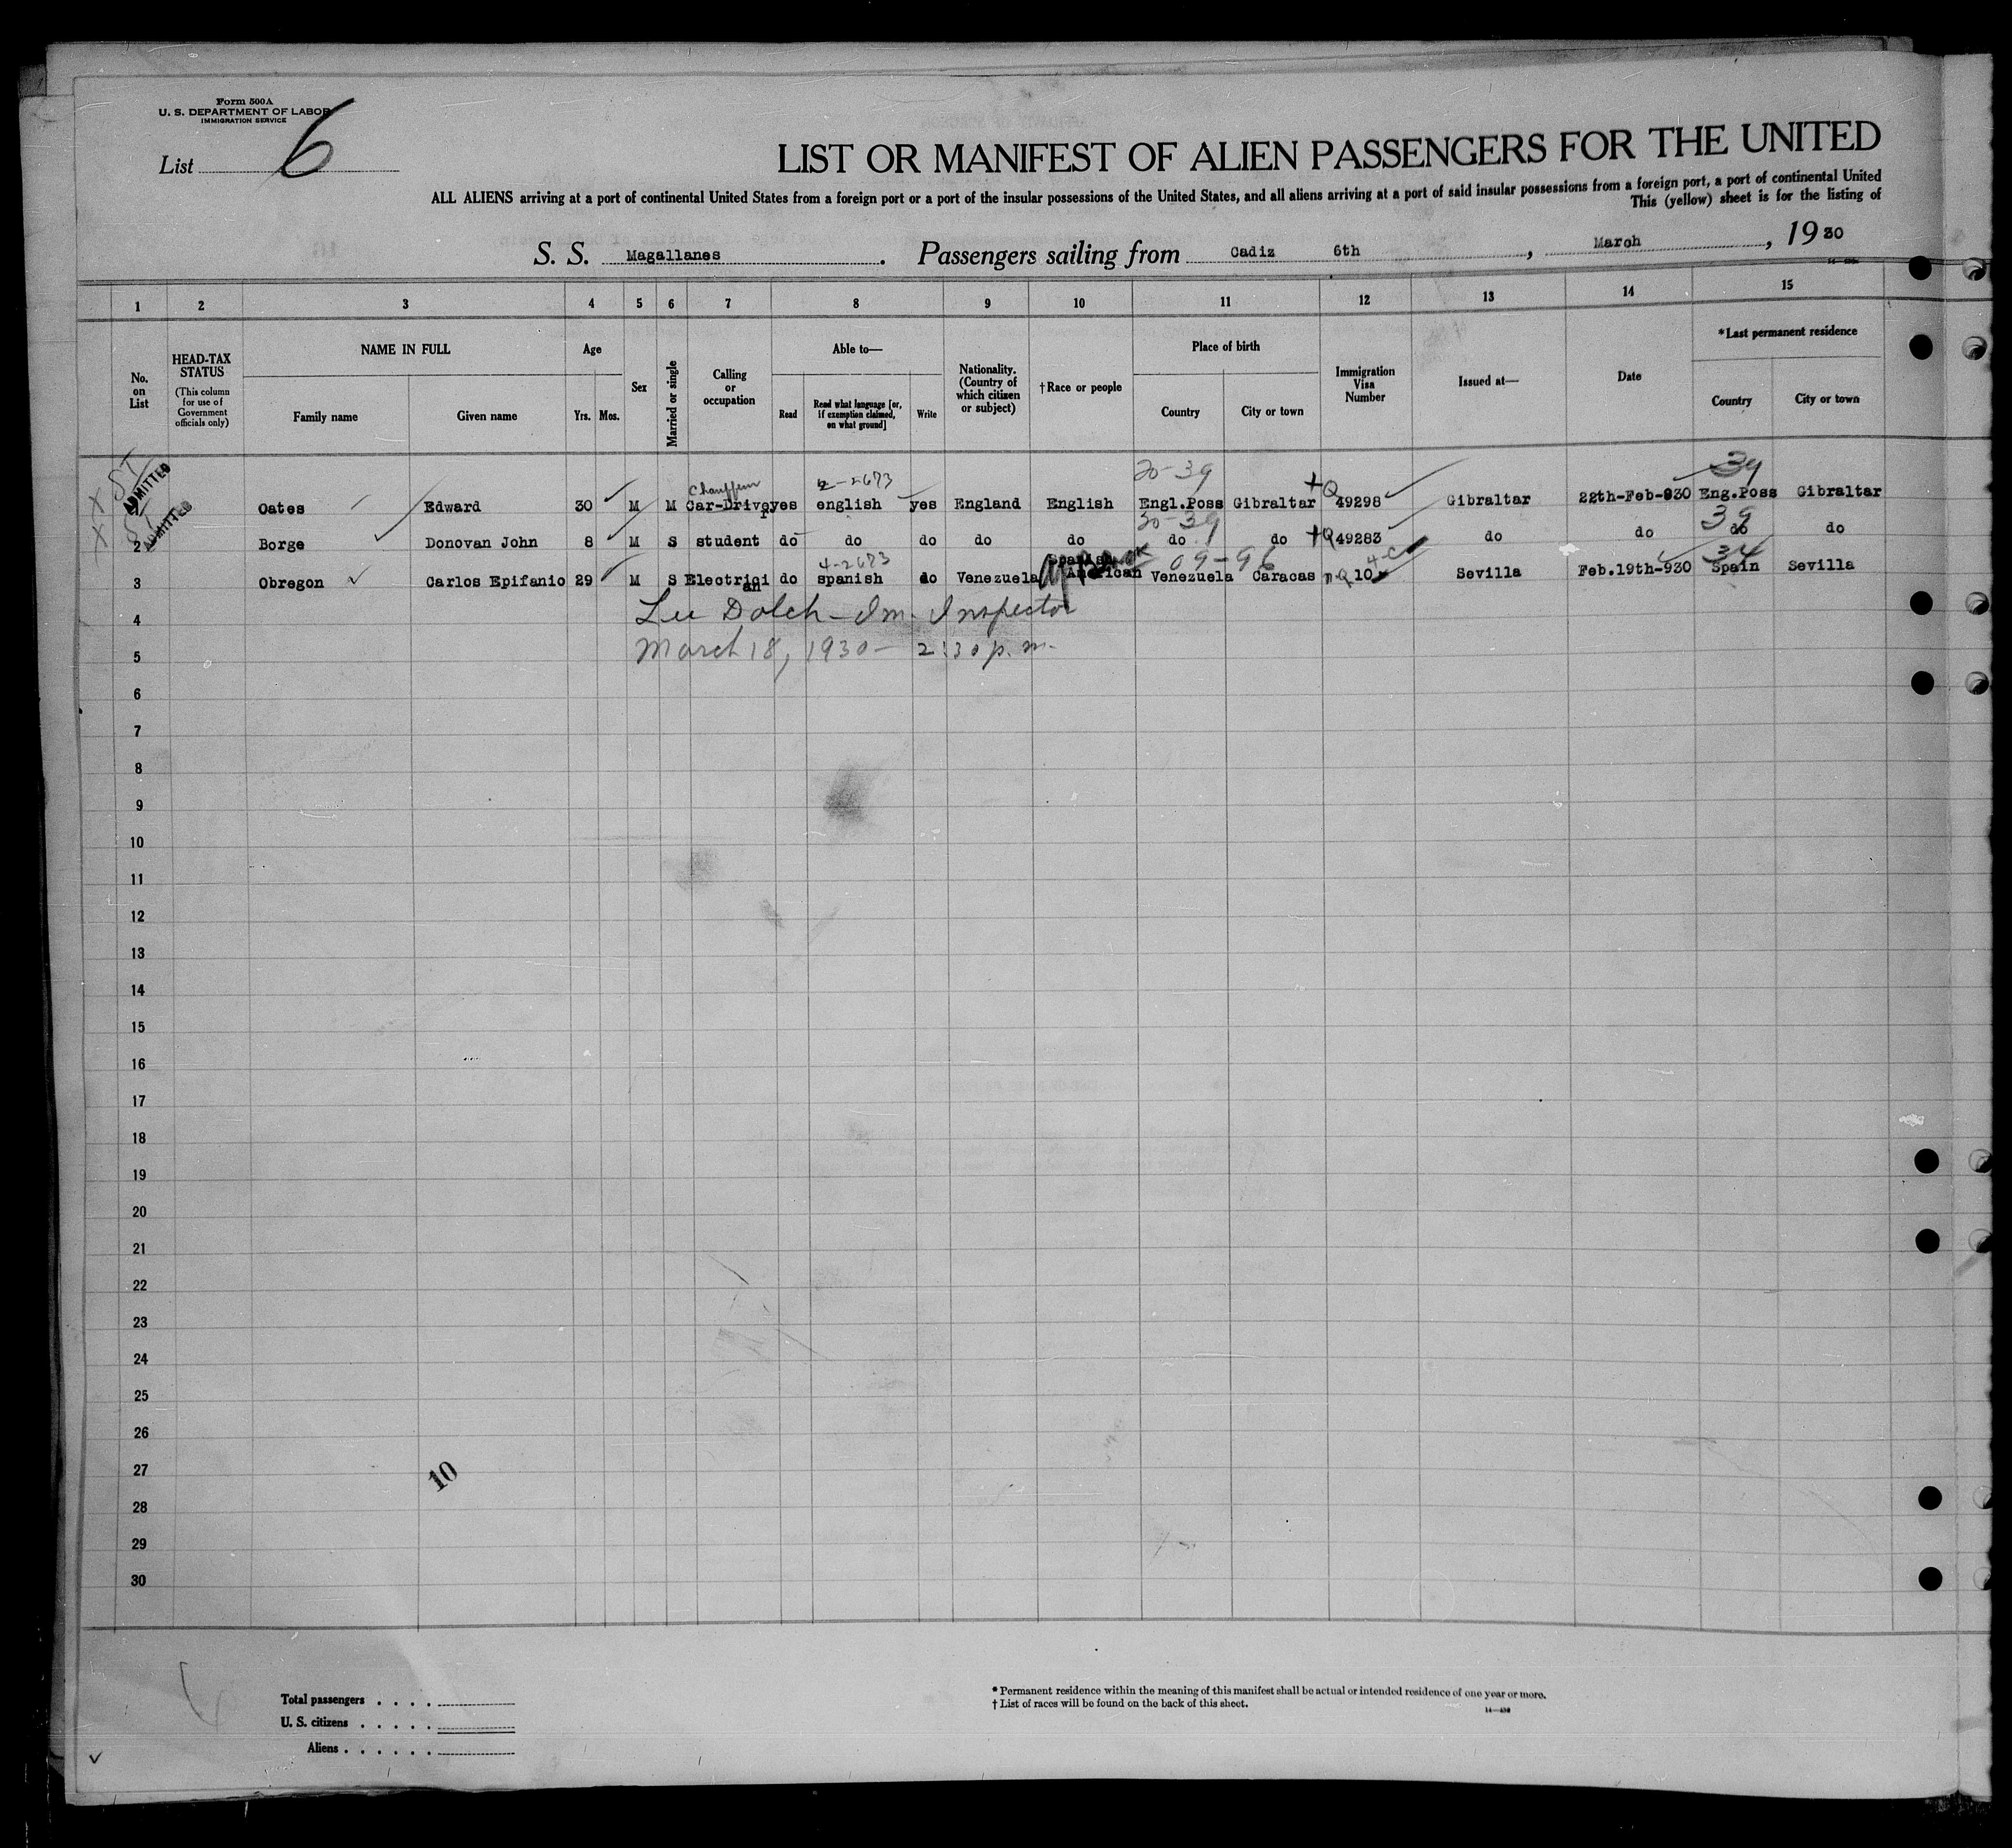 Form 500A
U. S. DEPARTMENT OF LABOR
IMMIGRATION SERVICE
List 6
LIST OR MANIFEST OF ALIEN PASSENGERS FOR THE UNITED
ALL ALIENS arriving at a port of continental United States from a foreign port or a port of the insular possessions of the United States, and all aliens arriving at a port of said insular possessions from a foreign port, a port of continental United
This (yellow) sheet is for the listing of
S. S. Magallanes. Passengers sailing from Cadiz 6th, March, 1930
1 2 3 4 5 6 7 8 9 10 11 12 13 14 15
No. on List
HEAD-TAX STATUS (This column for use of Government officials only)
NAME IN FULL
Family name Given name
Age
Yrs. Mos.
Sex
Married or single
Calling or occupation
Able to—
Read
Read what language [or, if exemption claimed, on what ground]
Write
Nationality. (Country of which citizen or subject)
†Race or people
Place of birth
Country City or town
Immigration Visa Number
Issued at—
Date
*Last permanent residence
Country City or town
20-39 39
Chauffeur 2-2673
ADMITTED Oates Edward 30 M M Car-Driver yes english yes England English Engl.Poss Gibraltar Q 49298 Gibraltar 22th-Feb-930 Eng.Poss Gibraltar
30-39 39
2 ADMITTED Borge Donovan John 8 M S student do do do do do do do Q 49283 do do do do
4-2673 09-96 4-C 34
3 Obregon Carlos Epifanio 29 M S Electrician do spanish do Venezuela Spanish American Venezuela Caracas Q 10 Sevilla Feb.19th-930 Spain Sevilla
4 Lee Dolch - Im. Inspector
5 March 18, 1930 - 2:30 p.m.
6
7
8
9
10
11
12
13
14
15
16
17
18
19
20
21
22
23
24
25
26
27
10
28
29
30
Total passengers . . . .
U. S. citizens . . . . .
Aliens . . . . . .
* Permanent residence within the meaning of this manifest shall be actual or intended residence of one year or more.
† List of races will be found on the back of this sheet.